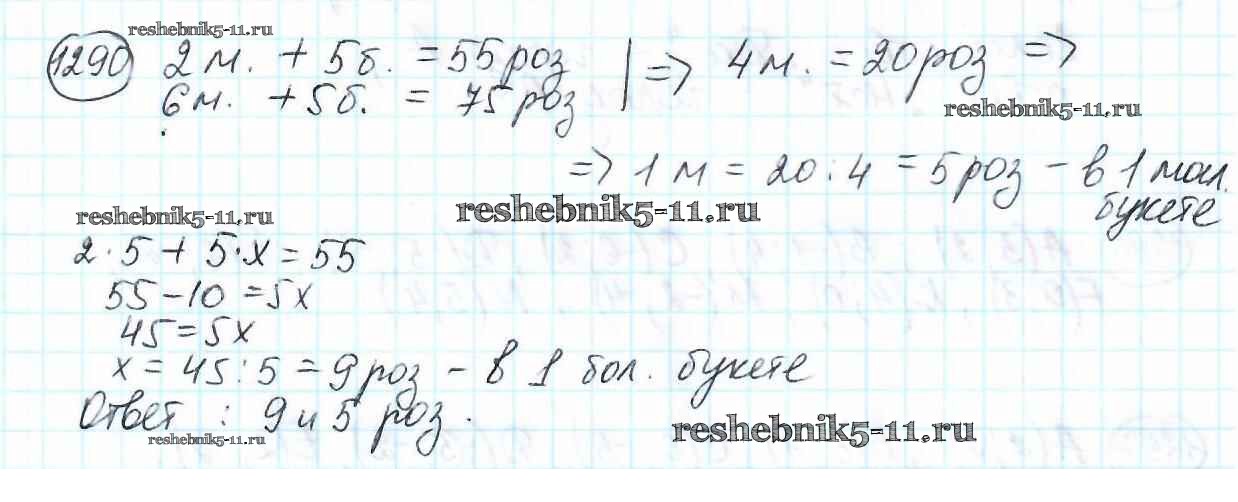 reshebnik5-11.ru
1290 2 м. + 5 б. = 55 роз
6 м. + 5 б. = 75 роз | => 4 м. = 20 роз =>
reshebnik5-11.ru
=> 1 м = 20 : 4 = 5 роз - в 1 мал.
букете
reshebnik5-11.ru reshebnik5-11.ru
2 · 5 + 5 · х = 55
55 - 10 = 5х
45 = 5х
х = 45 : 5 = 9 роз - в 1 бол. букете
Ответ : 9 и 5 роз.
reshebnik5-11.ru reshebnik5-11.ru